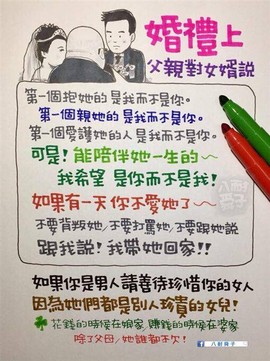 婚禮上
父親對女婿説
第一個抱她的是我而不是你。
第一個親她的是我而不是你。
第一個愛護她的人是我而不是你。
可是！能陪伴她一生的～
我希望 是你而不是我！
如果有一天你不愛她了～
不要背叛她/不要打罵她/不要跟她說
跟我説！我帶她回家！！
如果你是男人請善待珍惜你的女人
因為她們都是別人珍貴的女兒！
花錢的時侯在娘家，賺錢的時侯在婆家
除了父母/她誰都不欠！